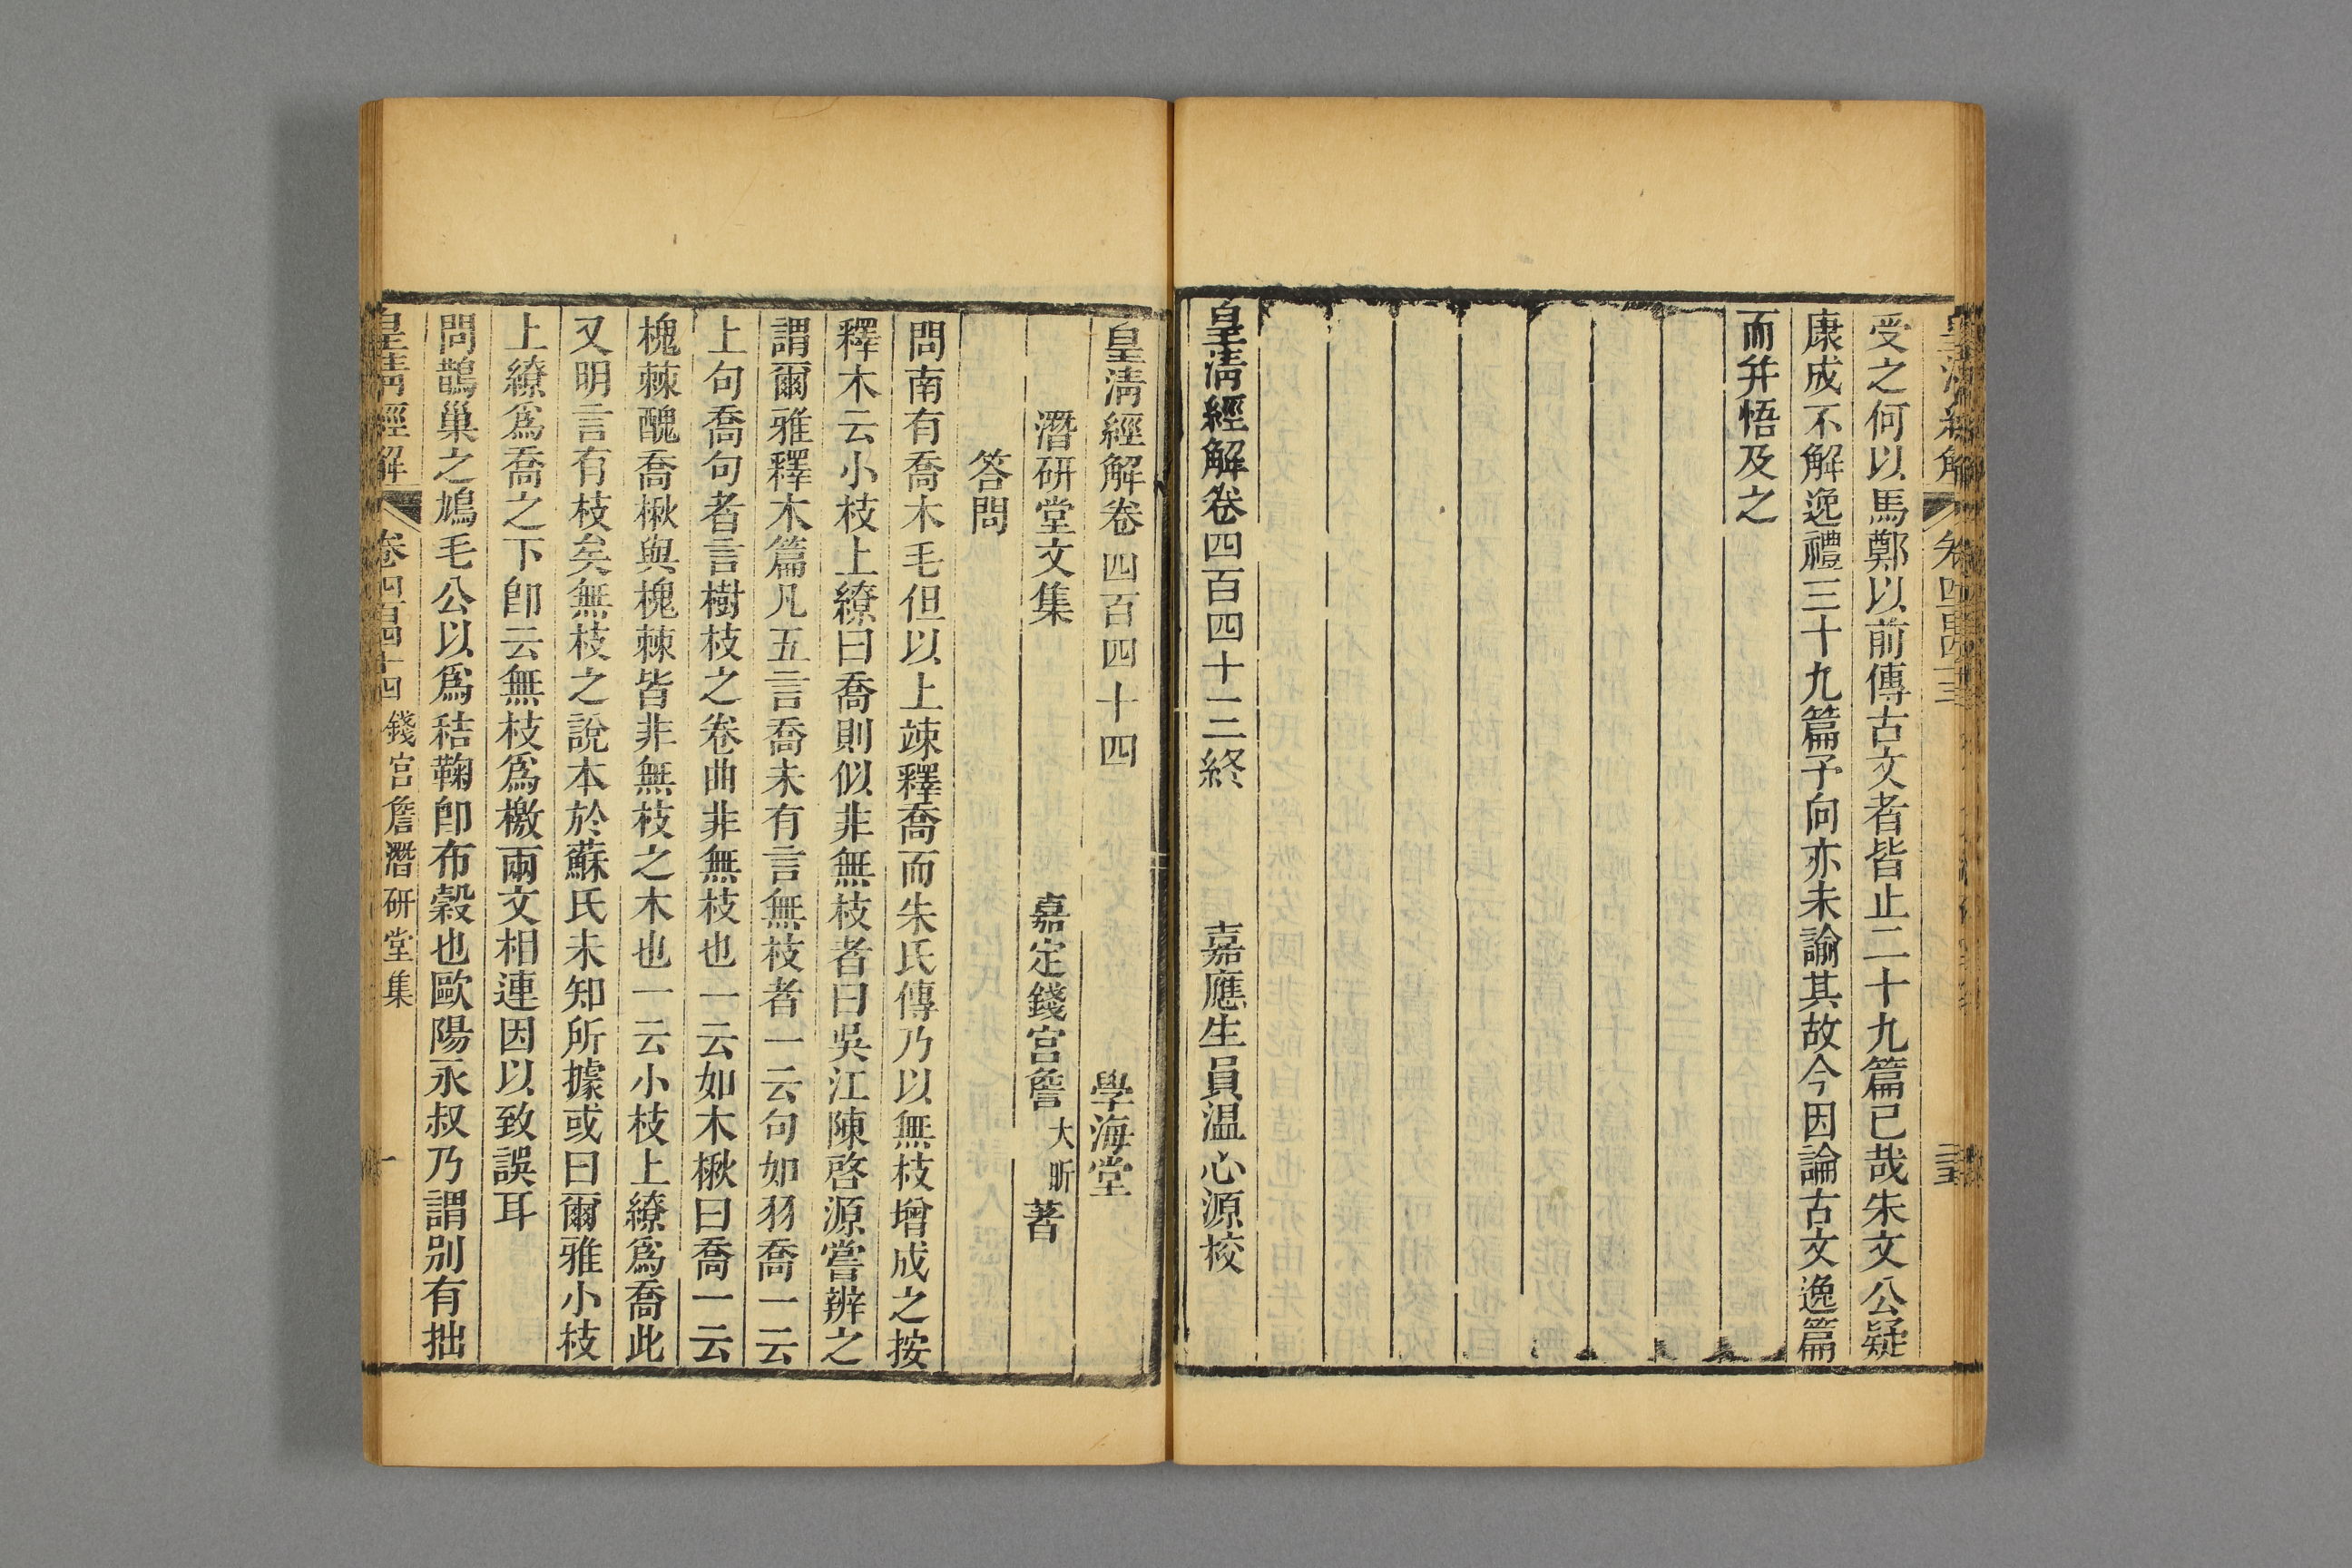 受之何以馬鄭以前傳古文者皆止二十九篇已哉朱文公疑
康成不解逸禮三十九篇予向亦未諭其故今因論古文逸篇
而幷悟及之
皇淸經解卷四百四十三終
嘉應生員温心源校
皇淸經解卷四百四十四
學海堂
潛研堂文集
嘉定錢宮詹大昕著
答問
問南有喬木毛但以上竦釋喬而朱氏傳乃以無枝增成之按
釋木云小枝上繚曰喬則似非無枝者曰吳江陳啓源嘗辨之
謂爾雅釋木篇凡五言喬未有言無枝者一云句如羽喬一云
上句喬句者言樹枝之卷曲非無枝也一云如木楸曰喬一云
槐棘醜喬楸與槐棘皆非無枝之木也一云小枝上繚爲喬此
又明言有枝矣無枝之說本於蘇氏未知所據或曰爾雅小枝
上繚爲喬之下卽云無枝爲檄兩文相連因以致誤耳
問鵲巢之鳩毛公以爲秸鞠卽布穀也歐陽永叔乃謂別有拙
皇淸經解
卷四百四十四
錢宮詹潛研堂集
一